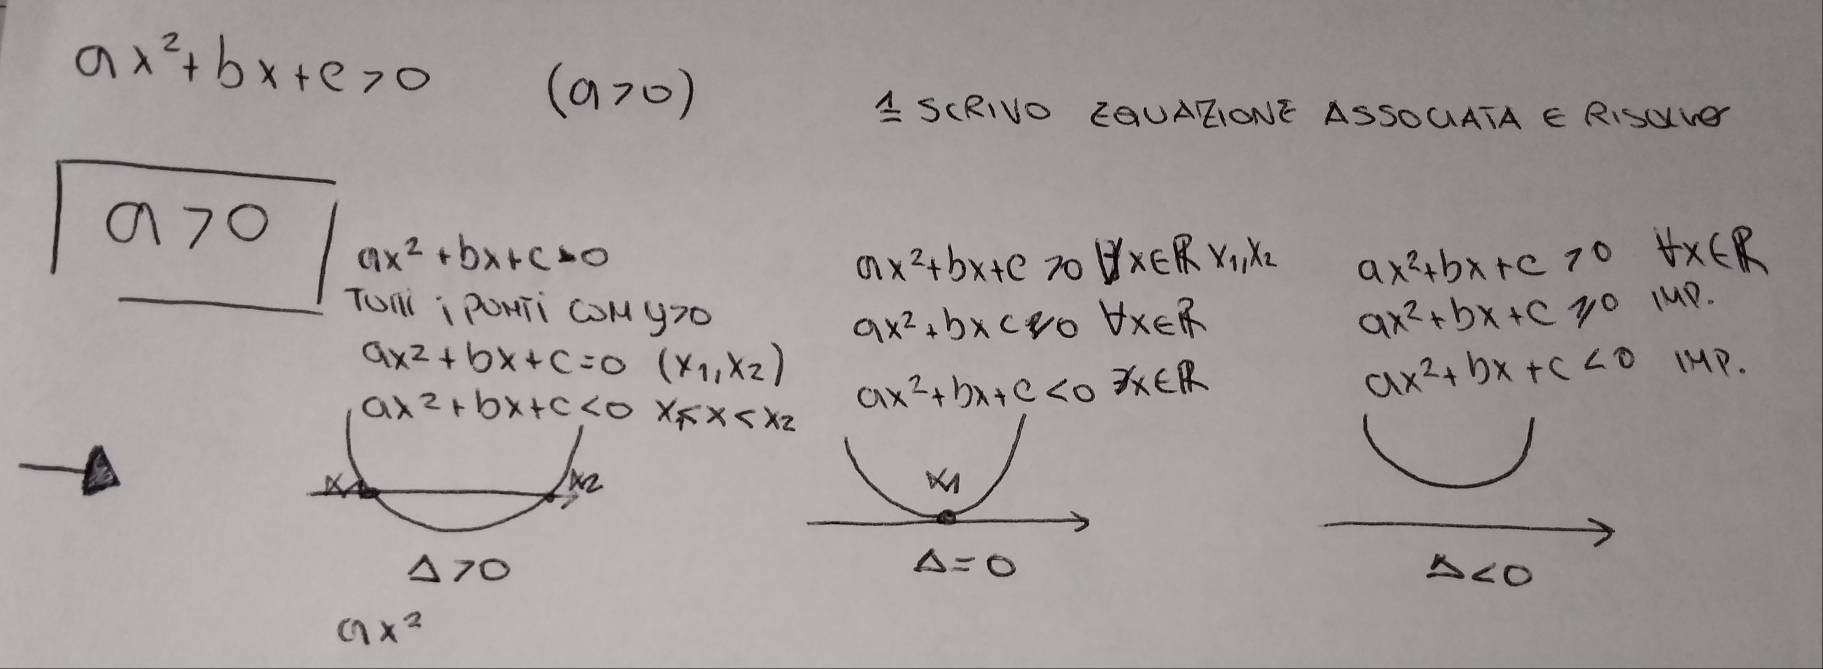 ax²+bx+c>0 (a>0)
1 SCRIVO EQUAZIONE ASSOCIATA E RISOLVO
a>0
ax²+bx+c>0
TUTTI i PUNTI CON y>0
ax²+bx+c=0 (x₁,x₂)
ax²+bx+c<0 x₁<x<x₂
x₁ x₂
Δ>0
ax²
ax²+bx+c>0 ∀x∈ℝ x₁,x₂
ax²+bx c 0 ∀x∈ℝ
ax²+bx+c<0 ∄x∈ℝ
x₁
Δ=0
ax²+bx+c>0 ∀x∈ℝ
ax²+bx+c 0 IMP.
ax²+bx+c<0 IMP.
Δ<0